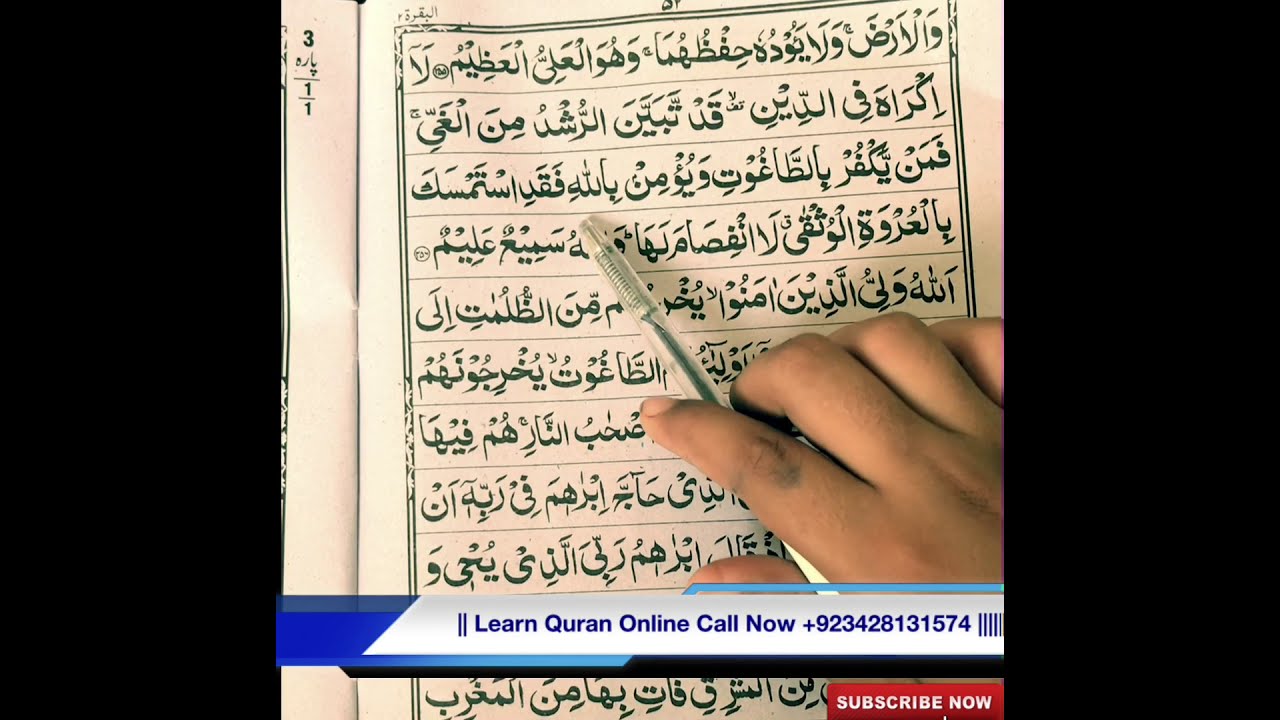 البقرة ٢
٥٢
3
پارہ
1
1
وَالْاَرْضَ ۚ وَلَا يَـُٔوْدُهٗ حِفْظُهُمَا ۚ وَهُوَ الْعَلِىُّ الْعَظِيْمُ ﴿۲۵۵﴾ لَاۤ
اِكْرَاهَ فِى الدِّيْنِ ۙ قَدْ تَّبَيَّنَ الرُّشْدُ مِنَ الْغَىِّ ۚ
فَمَنْ يَّكْفُرْ بِالطَّاغُوْتِ وَيُؤْمِنْۢ بِاللّٰهِ فَقَدِ اسْتَمْسَكَ
بِالْعُرْوَةِ الْوُثْقٰى ۗ لَا انْفِصَامَ لَهَا ؕ سَمِيْعٌ عَلِيْمٌ ﴿۲۵۶﴾
اَللّٰهُ وَلِىُّ الَّذِيْنَ اٰمَنُوْا ۙ مِّنَ الظُّلُمٰتِ اِلَى
الطَّاغُوْتُ ۙ يُخْرِجُوْنَهُمْ
النَّارِ ۚ هُمْ فِيْهَا
الَّذِىْ حَآجَّ اِبْرٰهٖمَ فِىْ رَبِّهٖۤ اَنْ
اِبْرٰهٖمُ رَبِّىَ الَّذِىْ يُحْىٖ وَ
|| Learn Quran Online Call Now +923428131574 ||||||
فَاْتِ بِهَا مِنَ الْمَغْرِبِ
SUBSCRIBE NOW